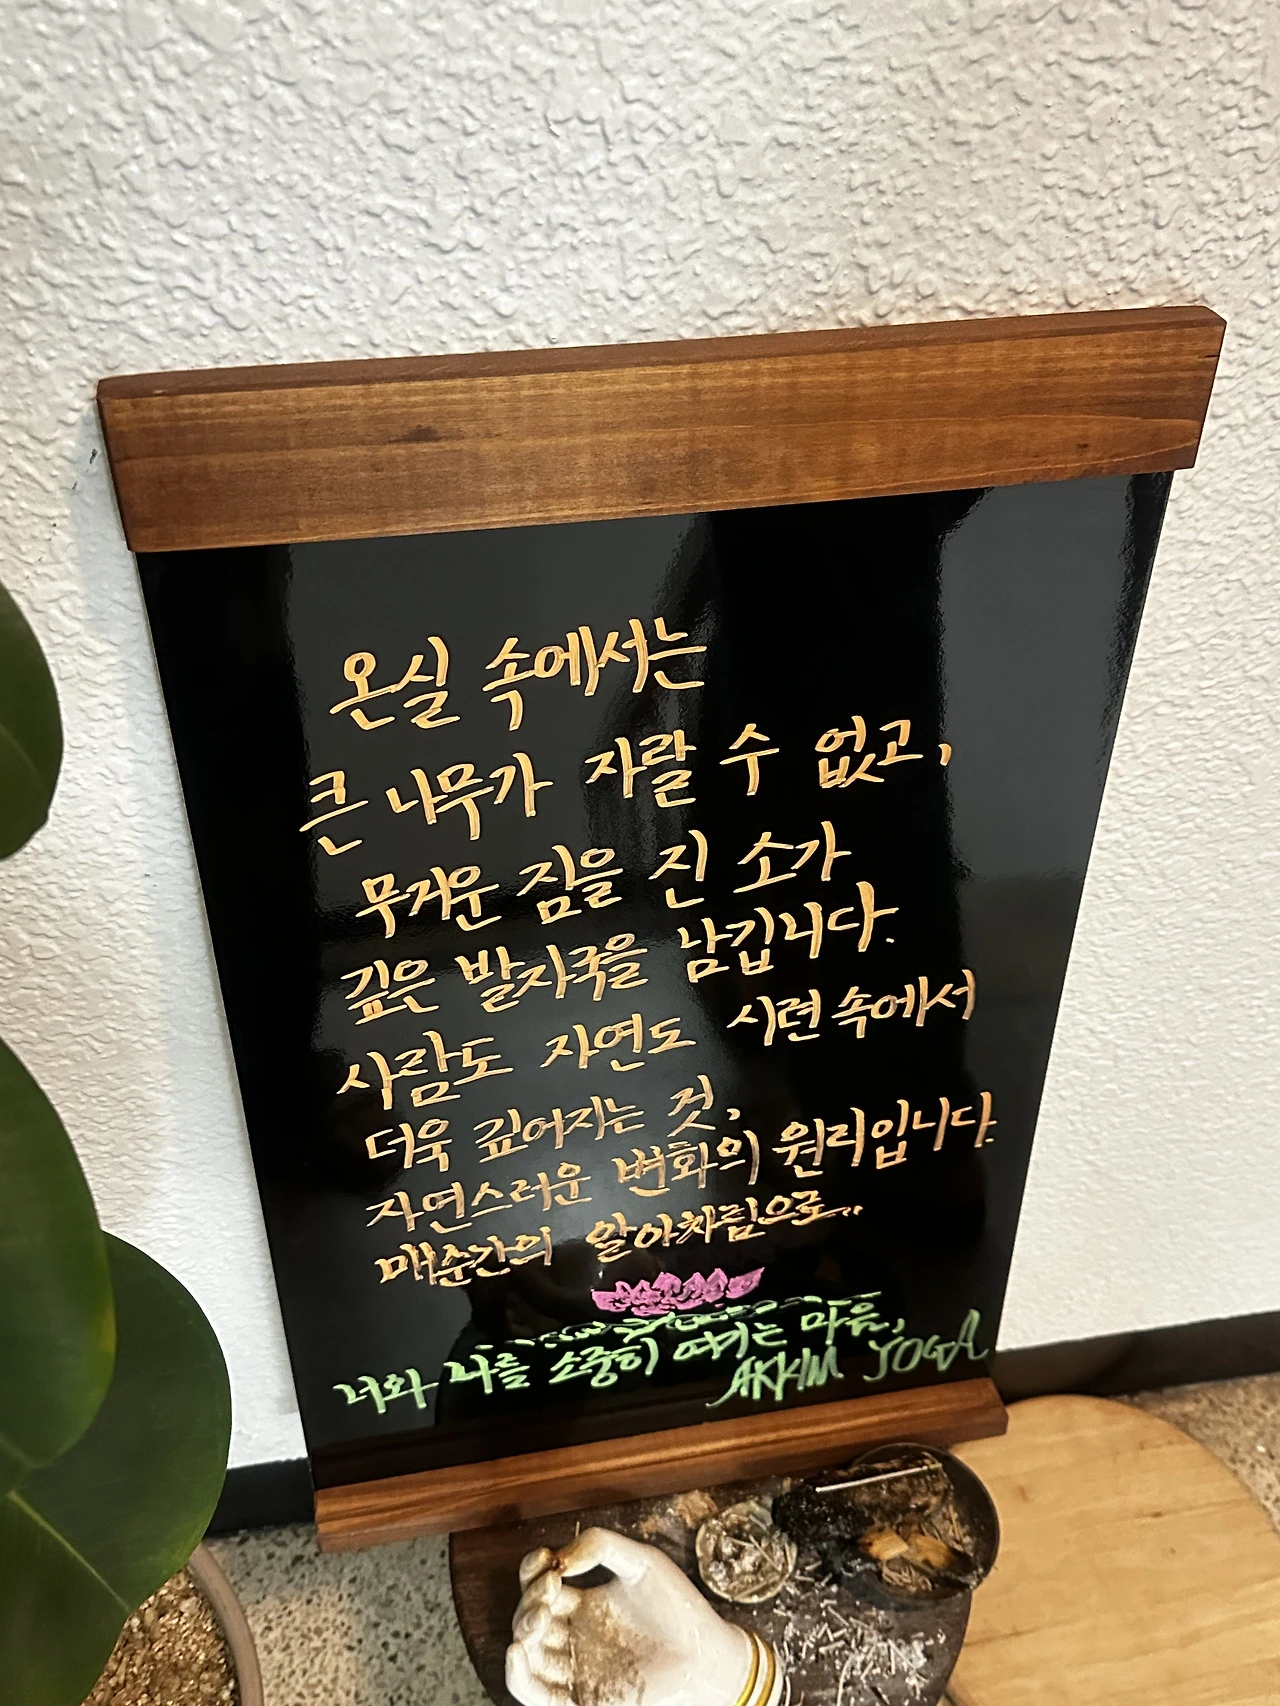 온실 속에서는
큰 나무가 자랄 수 없고,
무거운 짐을 진 소가
깊은 발자국을 남깁니다.
사람도 자연도 시련 속에서
더욱 깊어지는 것,
자연스러운 변화의 원리입니다.
매순간의 알아차림으로..
너와 나를 소중히 여기는 마음,
AKKIM YOGA